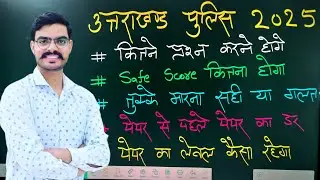 उत्तराखण्ड पुलिस 2025
# कितने प्रश्न करने होंगे
# Safe Score कितना होगा
# तुक्के मारना सही या गलत
* पेपर से पहले पेपर का डर
* पेपर का लेवल कैसा रहेगा